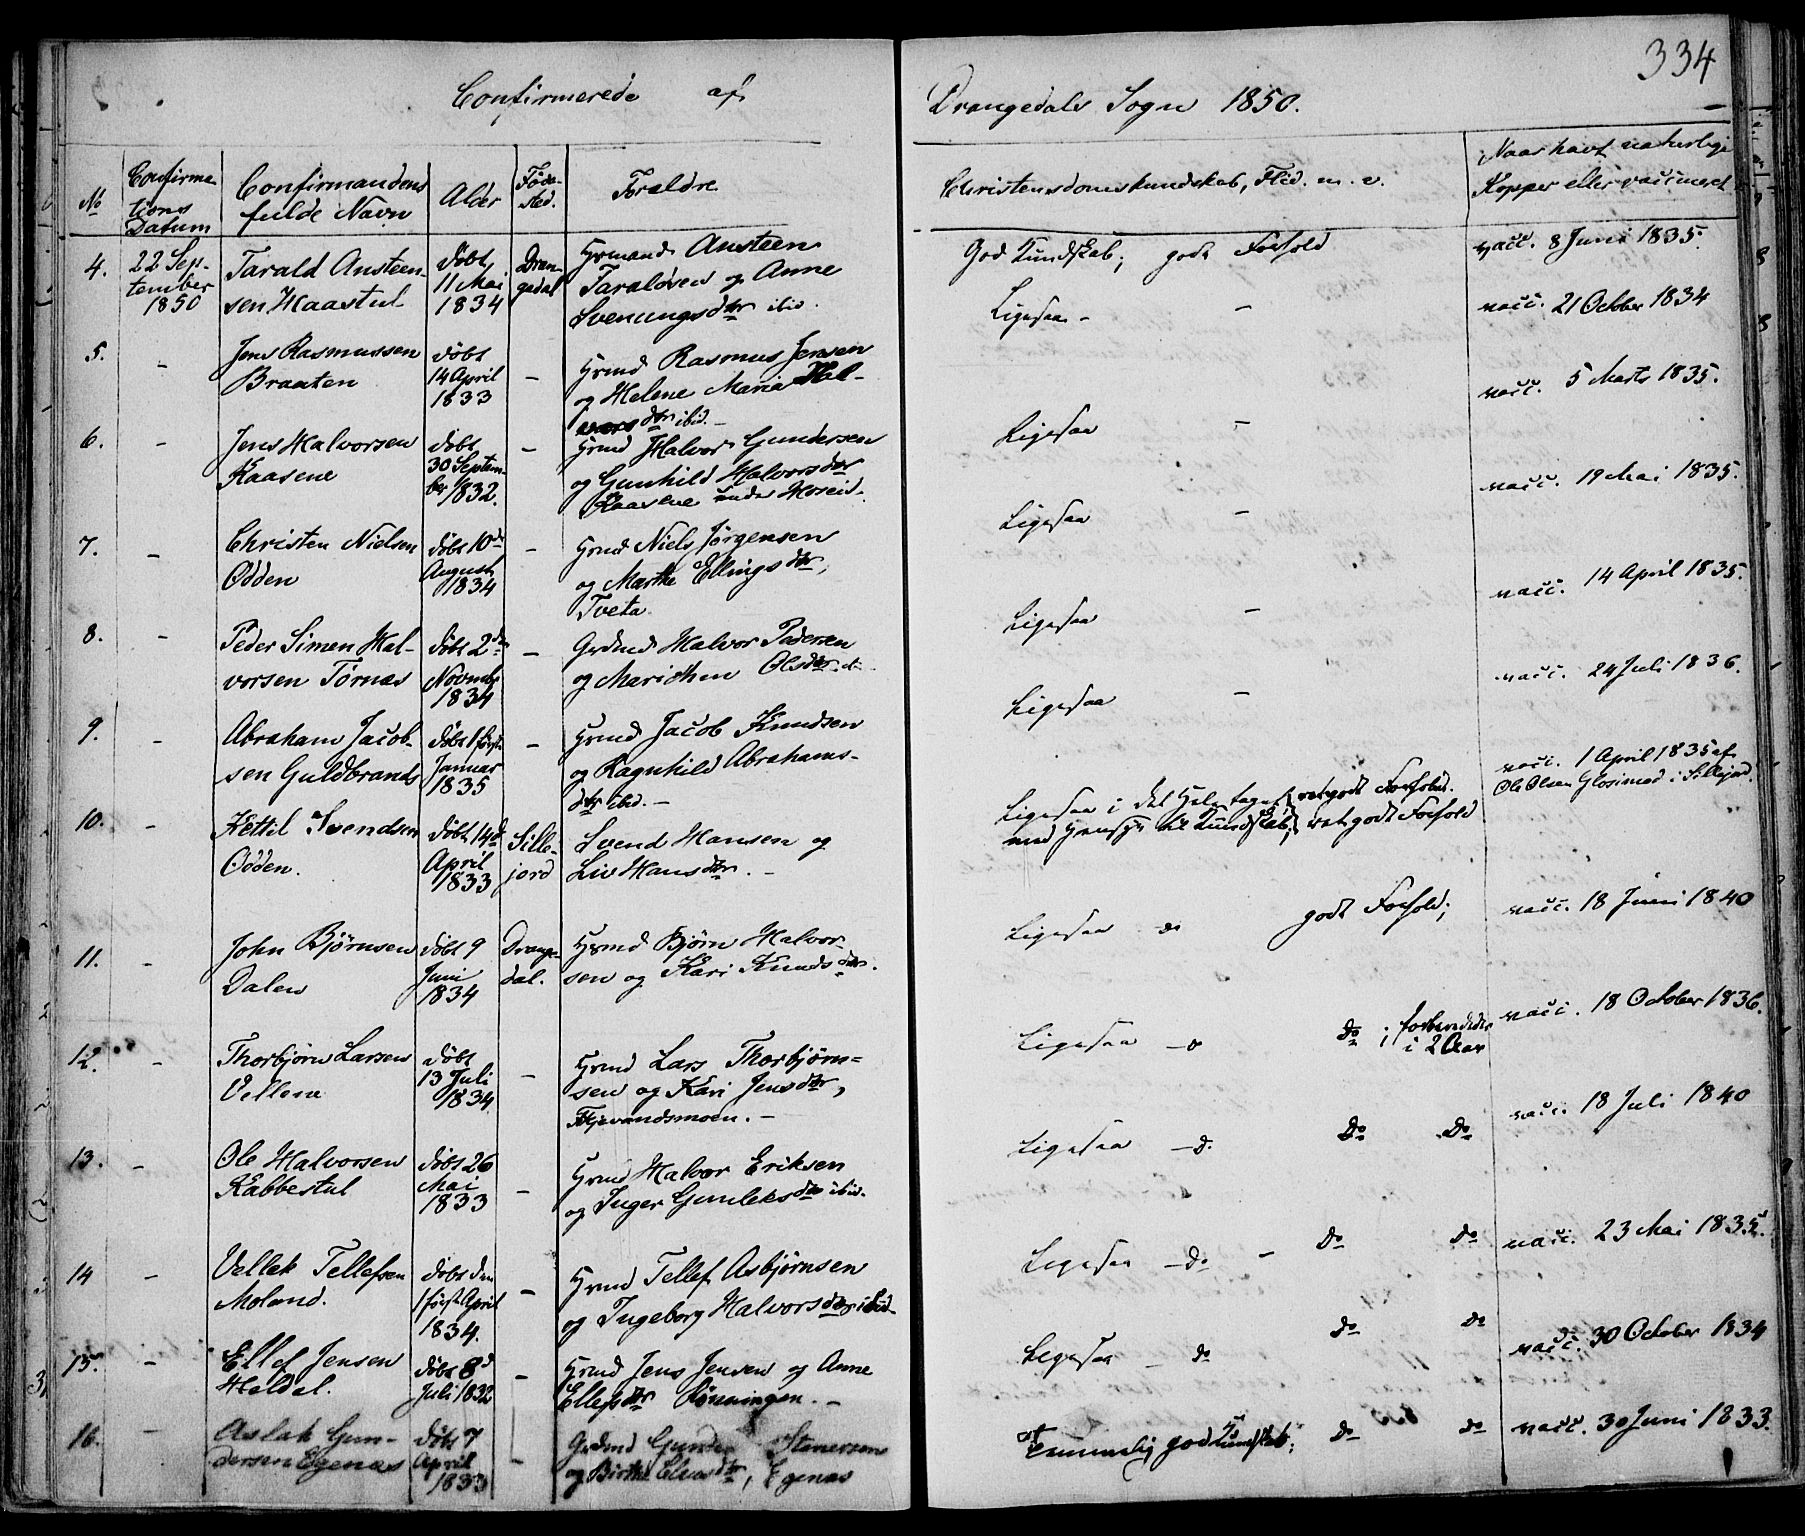 334
Confirmerede af Drangedals Sogn 1850.
No
Confirma-
tions
Datum
Confirmandens
fulde Navn
Alder
Føde-
sted.
Forældre
Christendomskundskab, Flid. m. v.
Naar havt naturlige
Kopper eller vaccineret
4.
22 Sep-
tember
1850
Tarald Austeen-
sen Haastul
døbt
11 Mai
1834
Dran-
gedal
Grmand Austeen
Taraldsen og Anne
Svenungsdtr ibid.
God Kundskab; godt Forhold
vacc. 8 Juni 1835.
5.
-
Jens Rasmussen
Braaten
døbt
14 April
1833
-
Grmd Rasmus Jensen
og Helene Maria Hal-
vorsdtr ibid. -
Ligesaa - -
vacc. 21 October 1834
6.
-
Jens Halvorsen
Kaasene
døbt
30 Septem-
ber 1832.
-
Grmd Halvor Gundersen
og Gunhild Halvorsdtr
Kaasene under Horeid.
Ligesaa -
vacc. 5 Marts 1835.
7.
-
Christen Nielsen
Odden
døbt 10de
August
1834
-
Grmd Niels Jørgensen
og Marthe Ellingsdtr,
Tveta.
Ligesaa -
vacc. 19 Mai 1835.
8.
-
Peder Simen Hal-
vorsen Tørnæs
døbt 2den
Novmbr
1834
-
Grdmd Halvor Pedersen
og Marichen Olsdtr
Ligesaa -
vacc. 14 April 1835.
9.
-
Abraham Jacob-
sen Guldbrands
døbt 1 først
Januar
1835
-
Grmd Jacob Knudsen
og Ragnhild Abrahams-
dtr ibid. -
Ligesaa -
vacc. 24 Juli 1836.
10.
-
Kettil Svendsen
Odden.
døbt 14d
April
1833
Sille-
jord
Svend Hansen og
Liv Hansdtr. -
Ligesaa i det Hele taget retgodt Forhold.
med Hensyn til Kundskab; ret godt Forhold
vacc. 1 April 1835 af
Ole Olsen Glosimod i Sillejord.
11.
-
John Bjørnsen
Dalen
døbt 9
Juni
1834
Drange-
dal.
Grmd Bjørn Halvor-
sen og Kari Knudsdtr.
Ligesaa do godt Forhold;
vacc. 18 Juni 1840
12.
-
Thorbjørn Larsen
Vellene
døbt
13 Juli
1834
-
Grmd Lars Thorbjørn-
sen og Kari Jensdtr,
Stjevandsmoen. -
Ligesaa - do do; forberedet
i 2 Aar
vacc. 18 October 1836.
13.
-
Ole Halvorsen
Kabbestul
døbt 26
Mai
1833
-
Grmd Halvor Eriksen
og Inger Gunleksdtr ibid.
Ligesaa - do. do do
vacc. 18 Juli 1840
14
-
Vellek Tellefsen
Moland.
døbt den
1 først April
1834.
-
Grmd Tellef Asbjørnsen
og Ingeborg Halvorsdtr ibid.
Ligesaa - do - do do
vacc. 23 Mai 1835.
15.
-
Ellef Jensen
Heldal.
døbt 8d
Juli 1832
-
Grmd Jens Jensen og Anne
Ellefsdtr Rønningen. -
Ligesaa - do do do
vacc. 30 October 1834
16.
-
Aslak Gun-
dersen Egenæs
døbt 7
April
1833
-
Grdmd Gunder Stenersen
og Birthe Elvasdtr, Egenæs
Temmelig god Kundskab; do do
vacc. 30 Juni 1833.